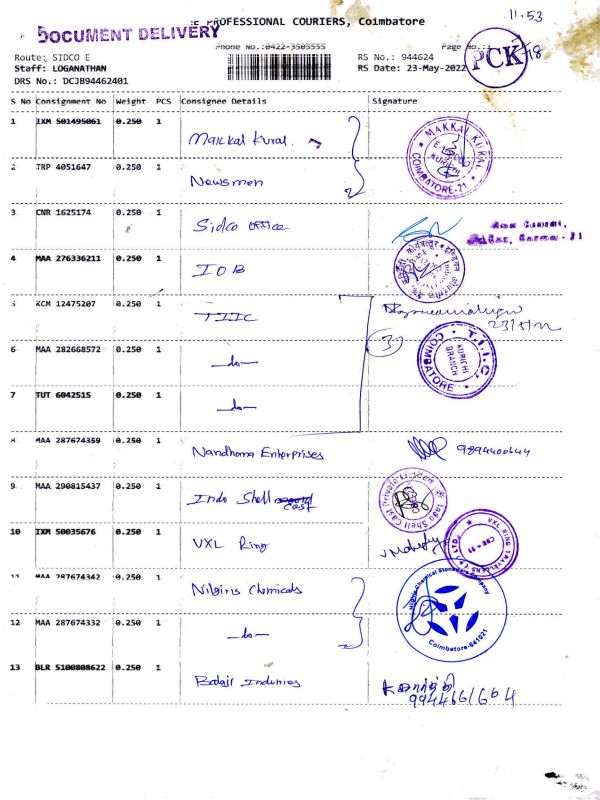 11.53
DOCUMENT DELIVERY
PROFESSIONAL COURIERS, Coimbatore
PCK
Phone No.:0422-3505555 Page No.:1
Route: SIDCO E RS No.: 944624
Staff: LOGANATHAN RS Date: 23-May-2022
DRS No.: DCJB94462401
S No Consignment No Weight PCS Consignee Details Signature
1 IXM 501495061 0.250 1 Makkal Kural
MAKKAL KURAL
KURICHI
COIMBATORE-21
2 TRP 4051647 0.250 1 Newsmen
3 CNR 1625174 0.250 1 Sidco Office
4 MAA 276336211 0.250 1 IOB
5 KCM 12475207 0.250 1 TIIC
6 MAA 282668572 0.250 1 -do-
3
T.I.I.C.
KURICHI BRANCH
COIMBATORE
7 TUT 6042515 0.250 1 -do-
8 MAA 287674359 0.250 1 Nandhana Enterprises
9 MAA 290815437 0.250 1 Indo Shell Cast
Indo Shell Cast Private Limited
10 IXM 50035676 0.250 1 VXL Ring
VXL RING TRAVELLERS (P) LTD
CBE - 21
11 MAA 287674342 0.250 1 Nilgiris Chemicals
Nilgiris Chemical Stoneware Company
Coimbatore-641021
12 MAA 287674332 0.250 1 -do-
13 BLR 5100808622 0.250 1 Balaji Industries
9944661664